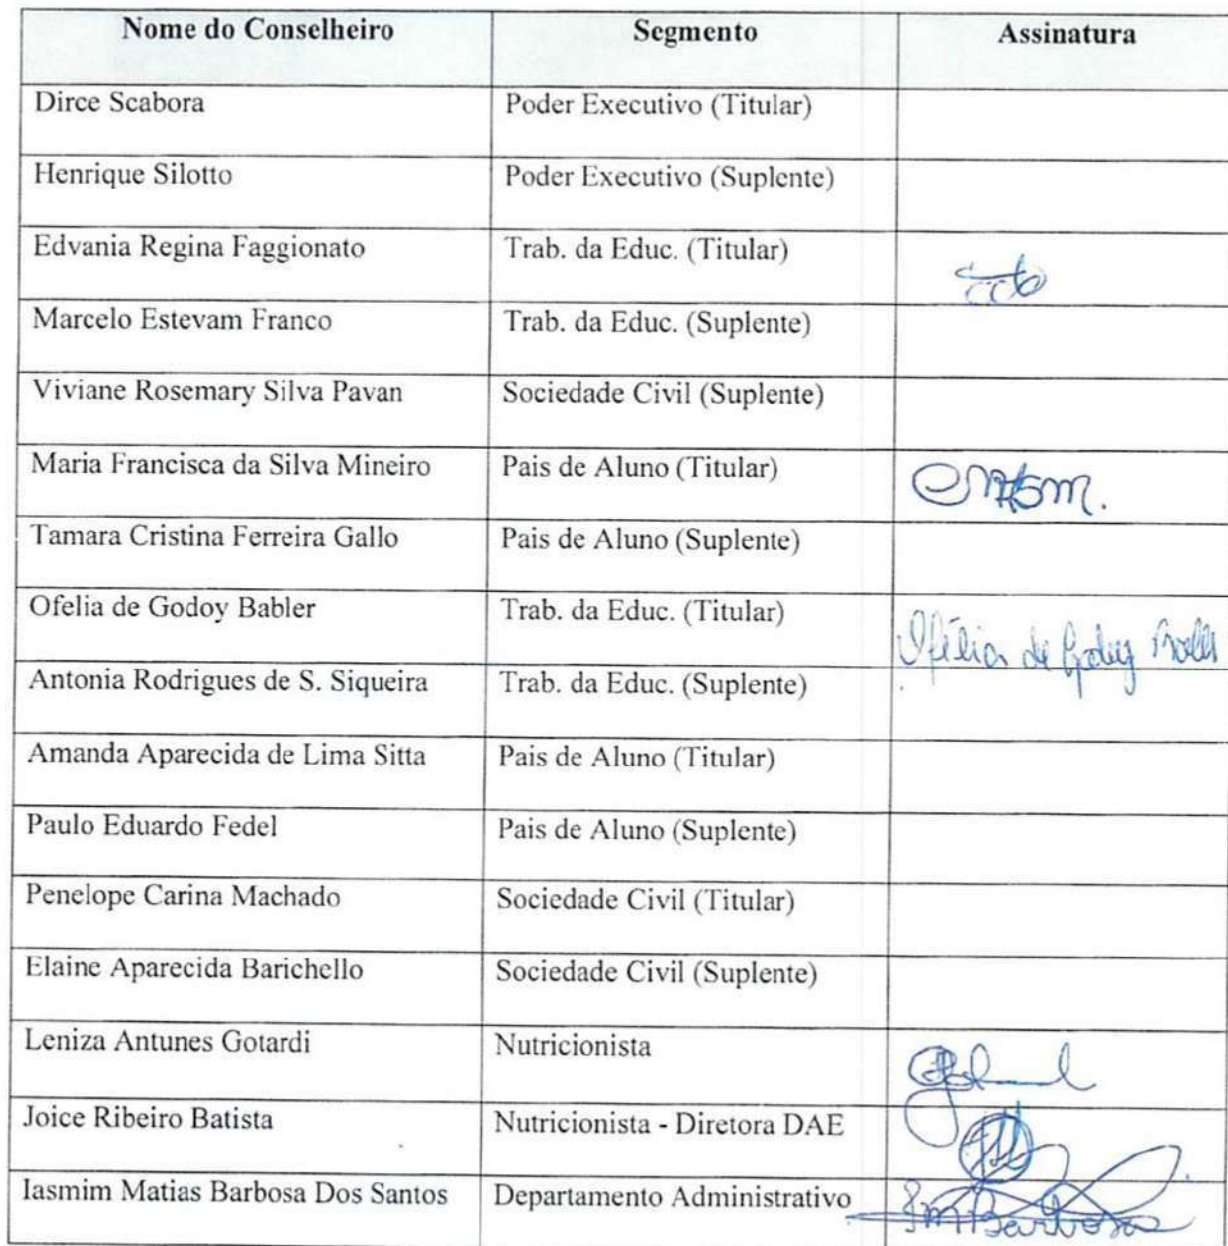 Nome do Conselheiro Segmento Assinatura
Dirce Scabora Poder Executivo (Titular)
Henrique Silotto Poder Executivo (Suplente)
Edvania Regina Faggionato Trab. da Educ. (Titular)
Marcelo Estevam Franco Trab. da Educ. (Suplente)
Viviane Rosemary Silva Pavan Sociedade Civil (Suplente)
Maria Francisca da Silva Mineiro Pais de Aluno (Titular)
Tamara Cristina Ferreira Gallo Pais de Aluno (Suplente)
Ofelia de Godoy Babler Trab. da Educ. (Titular) Ofélia de Godoy
Antonia Rodrigues de S. Siqueira Trab. da Educ. (Suplente)
Amanda Aparecida de Lima Sitta Pais de Aluno (Titular)
Paulo Eduardo Fedel Pais de Aluno (Suplente)
Penelope Carina Machado Sociedade Civil (Titular)
Elaine Aparecida Barichello Sociedade Civil (Suplente)
Leniza Antunes Gotardi Nutricionista
Joice Ribeiro Batista Nutricionista - Diretora DAE
Iasmim Matias Barbosa Dos Santos Departamento Administrativo ImBarbosa